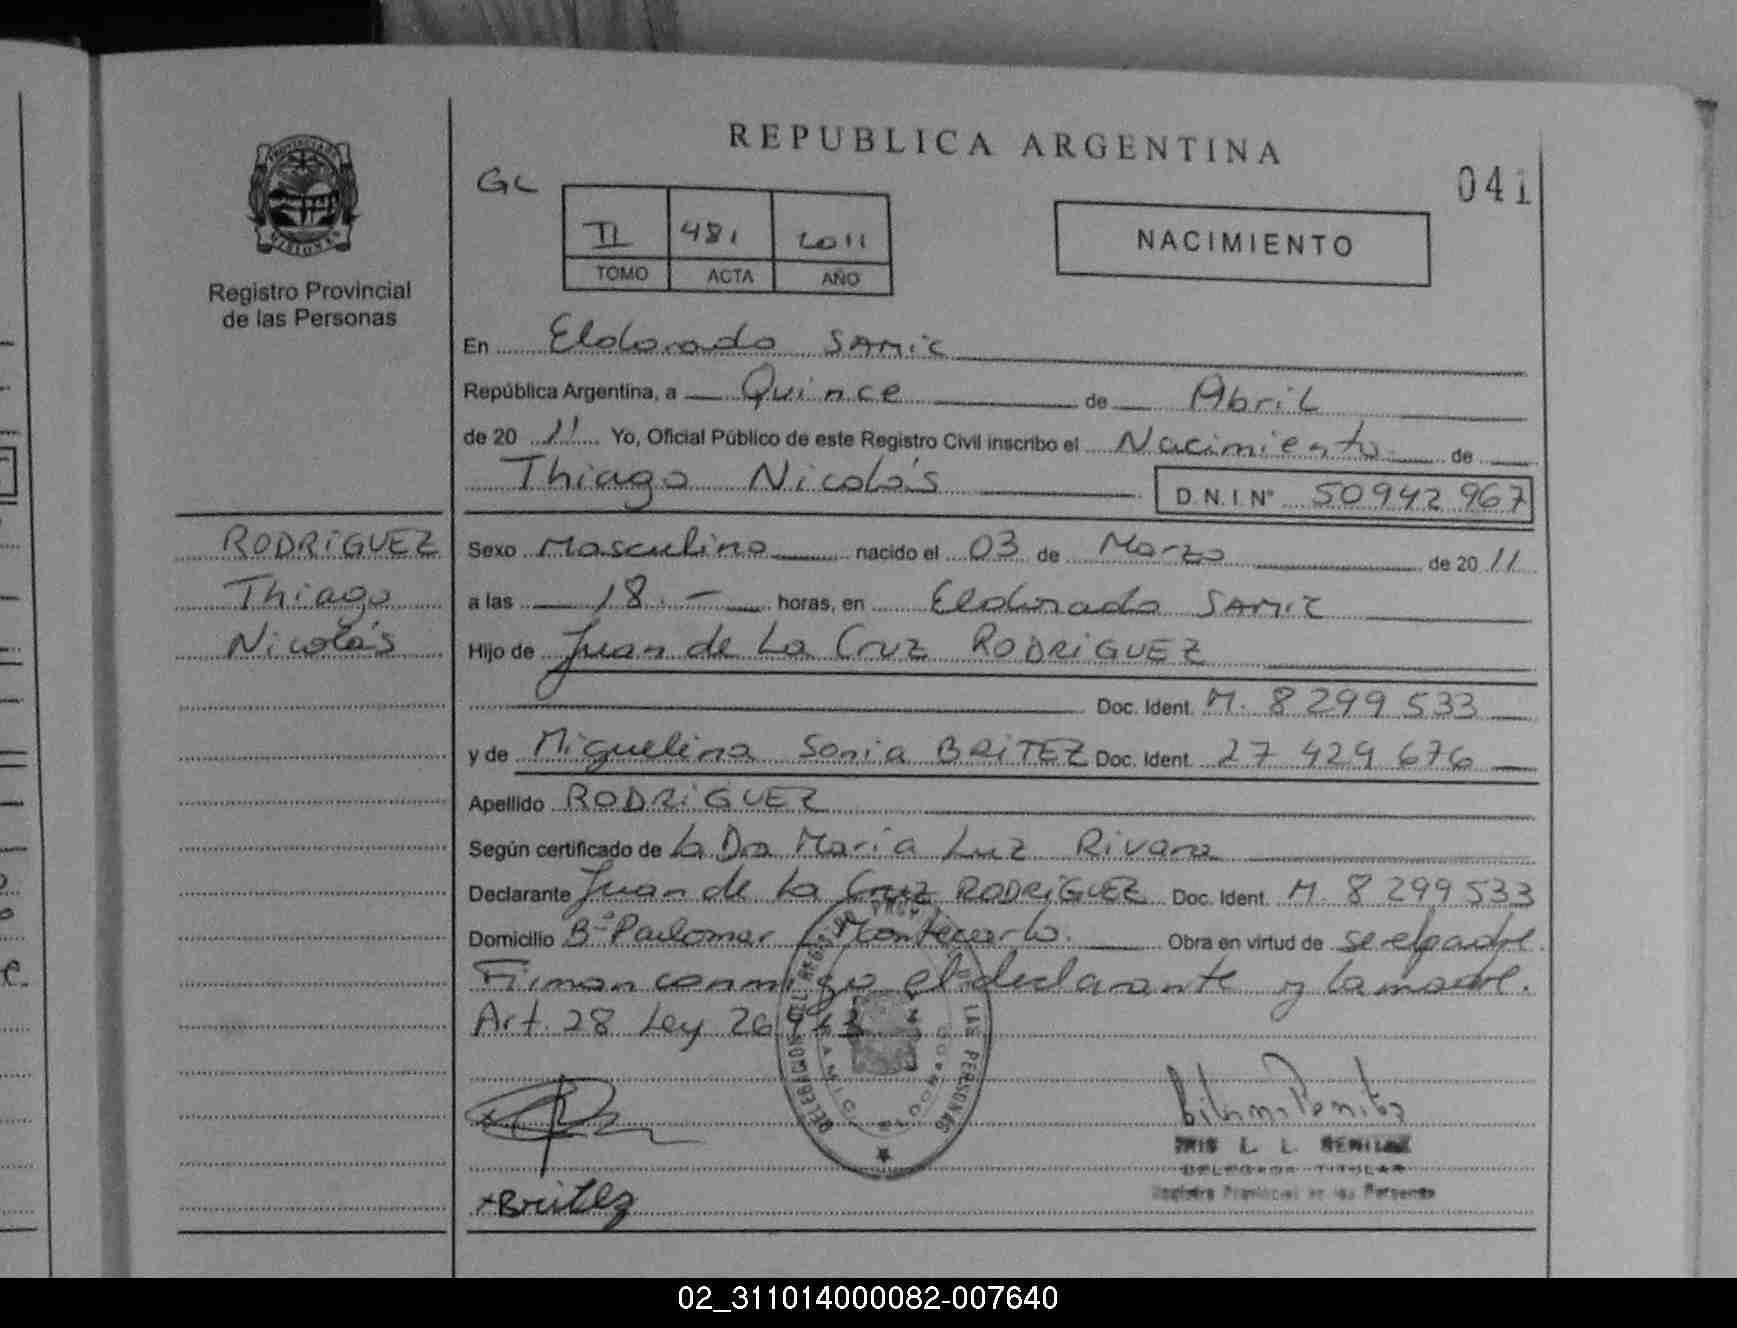 REPUBLICA ARGENTINA
041
GL
II 481 2011
TOMO ACTA AÑO
NACIMIENTO
PROVINCIA DE MISIONES
Registro Provincial
de las Personas
En Eldorado SAMIC
República Argentina, a Quince de Abril
de 20 11 Yo, Oficial Público de este Registro Civil inscribo el Nacimiento de
Thiago Nicolás D.N.I. N° 50942967
RODRIGUEZ
Thiago
Nicolás
Sexo Masculino nacido el 03 de Marzo de 20 11
a las 18.- horas, en Eldorado SAMIC
Hijo de Juan de La Cruz RODRIGUEZ
Doc. Ident. M. 8299533
y de Miguelina Sonia BRITEZ Doc. Ident. 27 429 676
Apellido RODRIGUEZ
Según certificado de La Dra María Luz Rivara
Declarante Juan de La Cruz RODRIGUEZ Doc. Ident. M. 8 299 533
Domicilio B° Palomar Montecarlo. Obra en virtud de se el padre.
Firman conmigo el declarante y la madre.
Art. 28 Ley 26413
LAS PERSONAS
L. L. BENITEZ
DELEGADA TITULAR
Registro Provincial de las Personas
+Britez
02_311014000082-007640